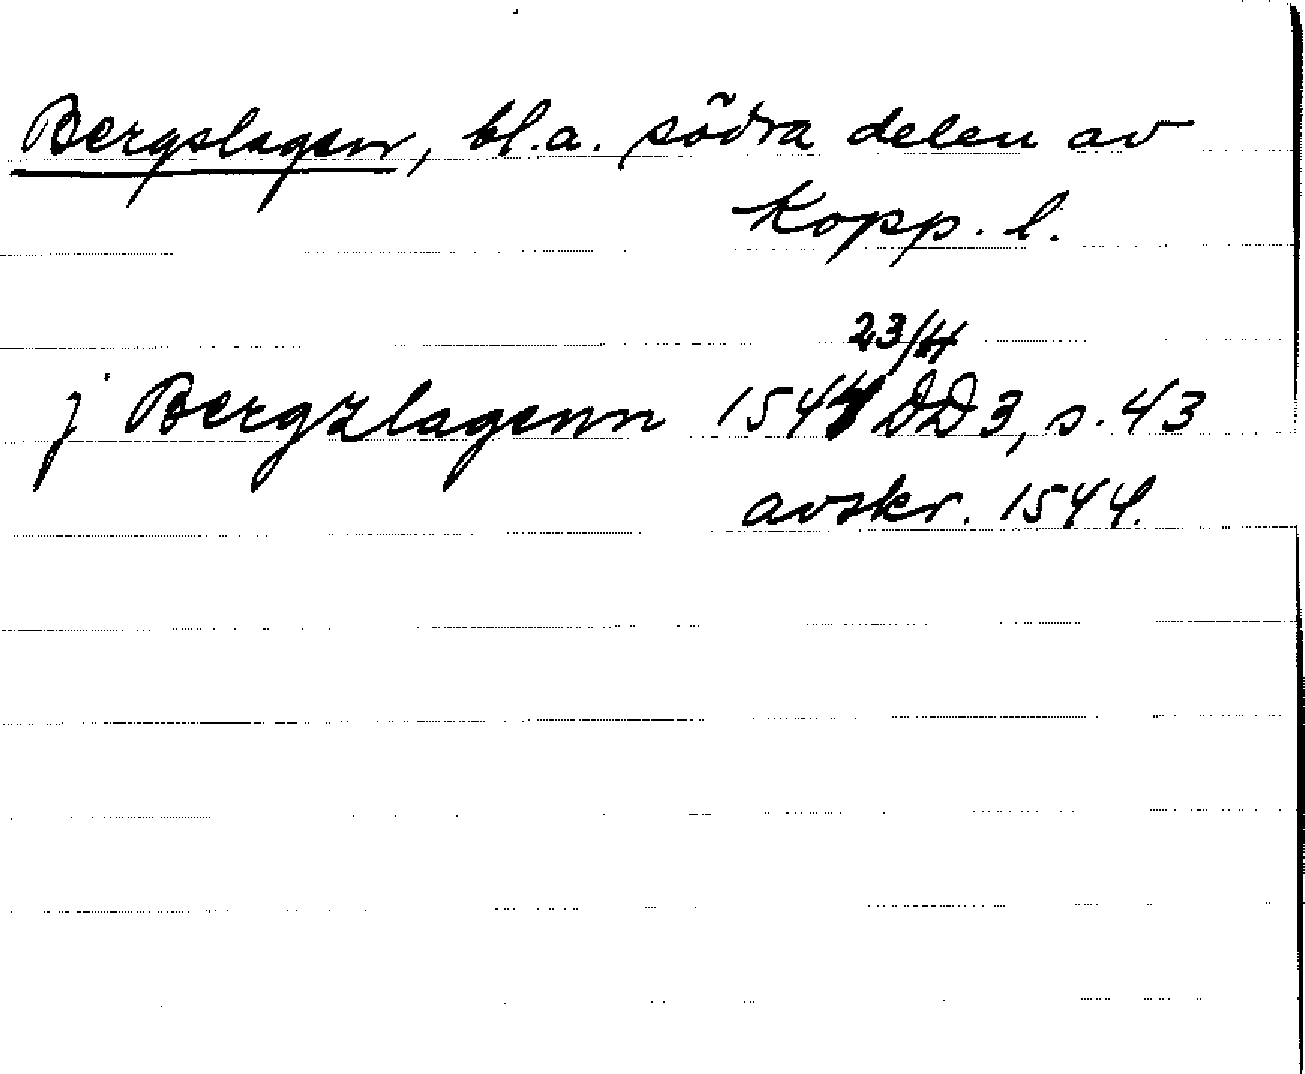 Bergslagen, bl.a. södra delen av
Kopp. l.
23/4
j Bergzlagenn 1544 DD 3, s. 43
avskr. 1544.